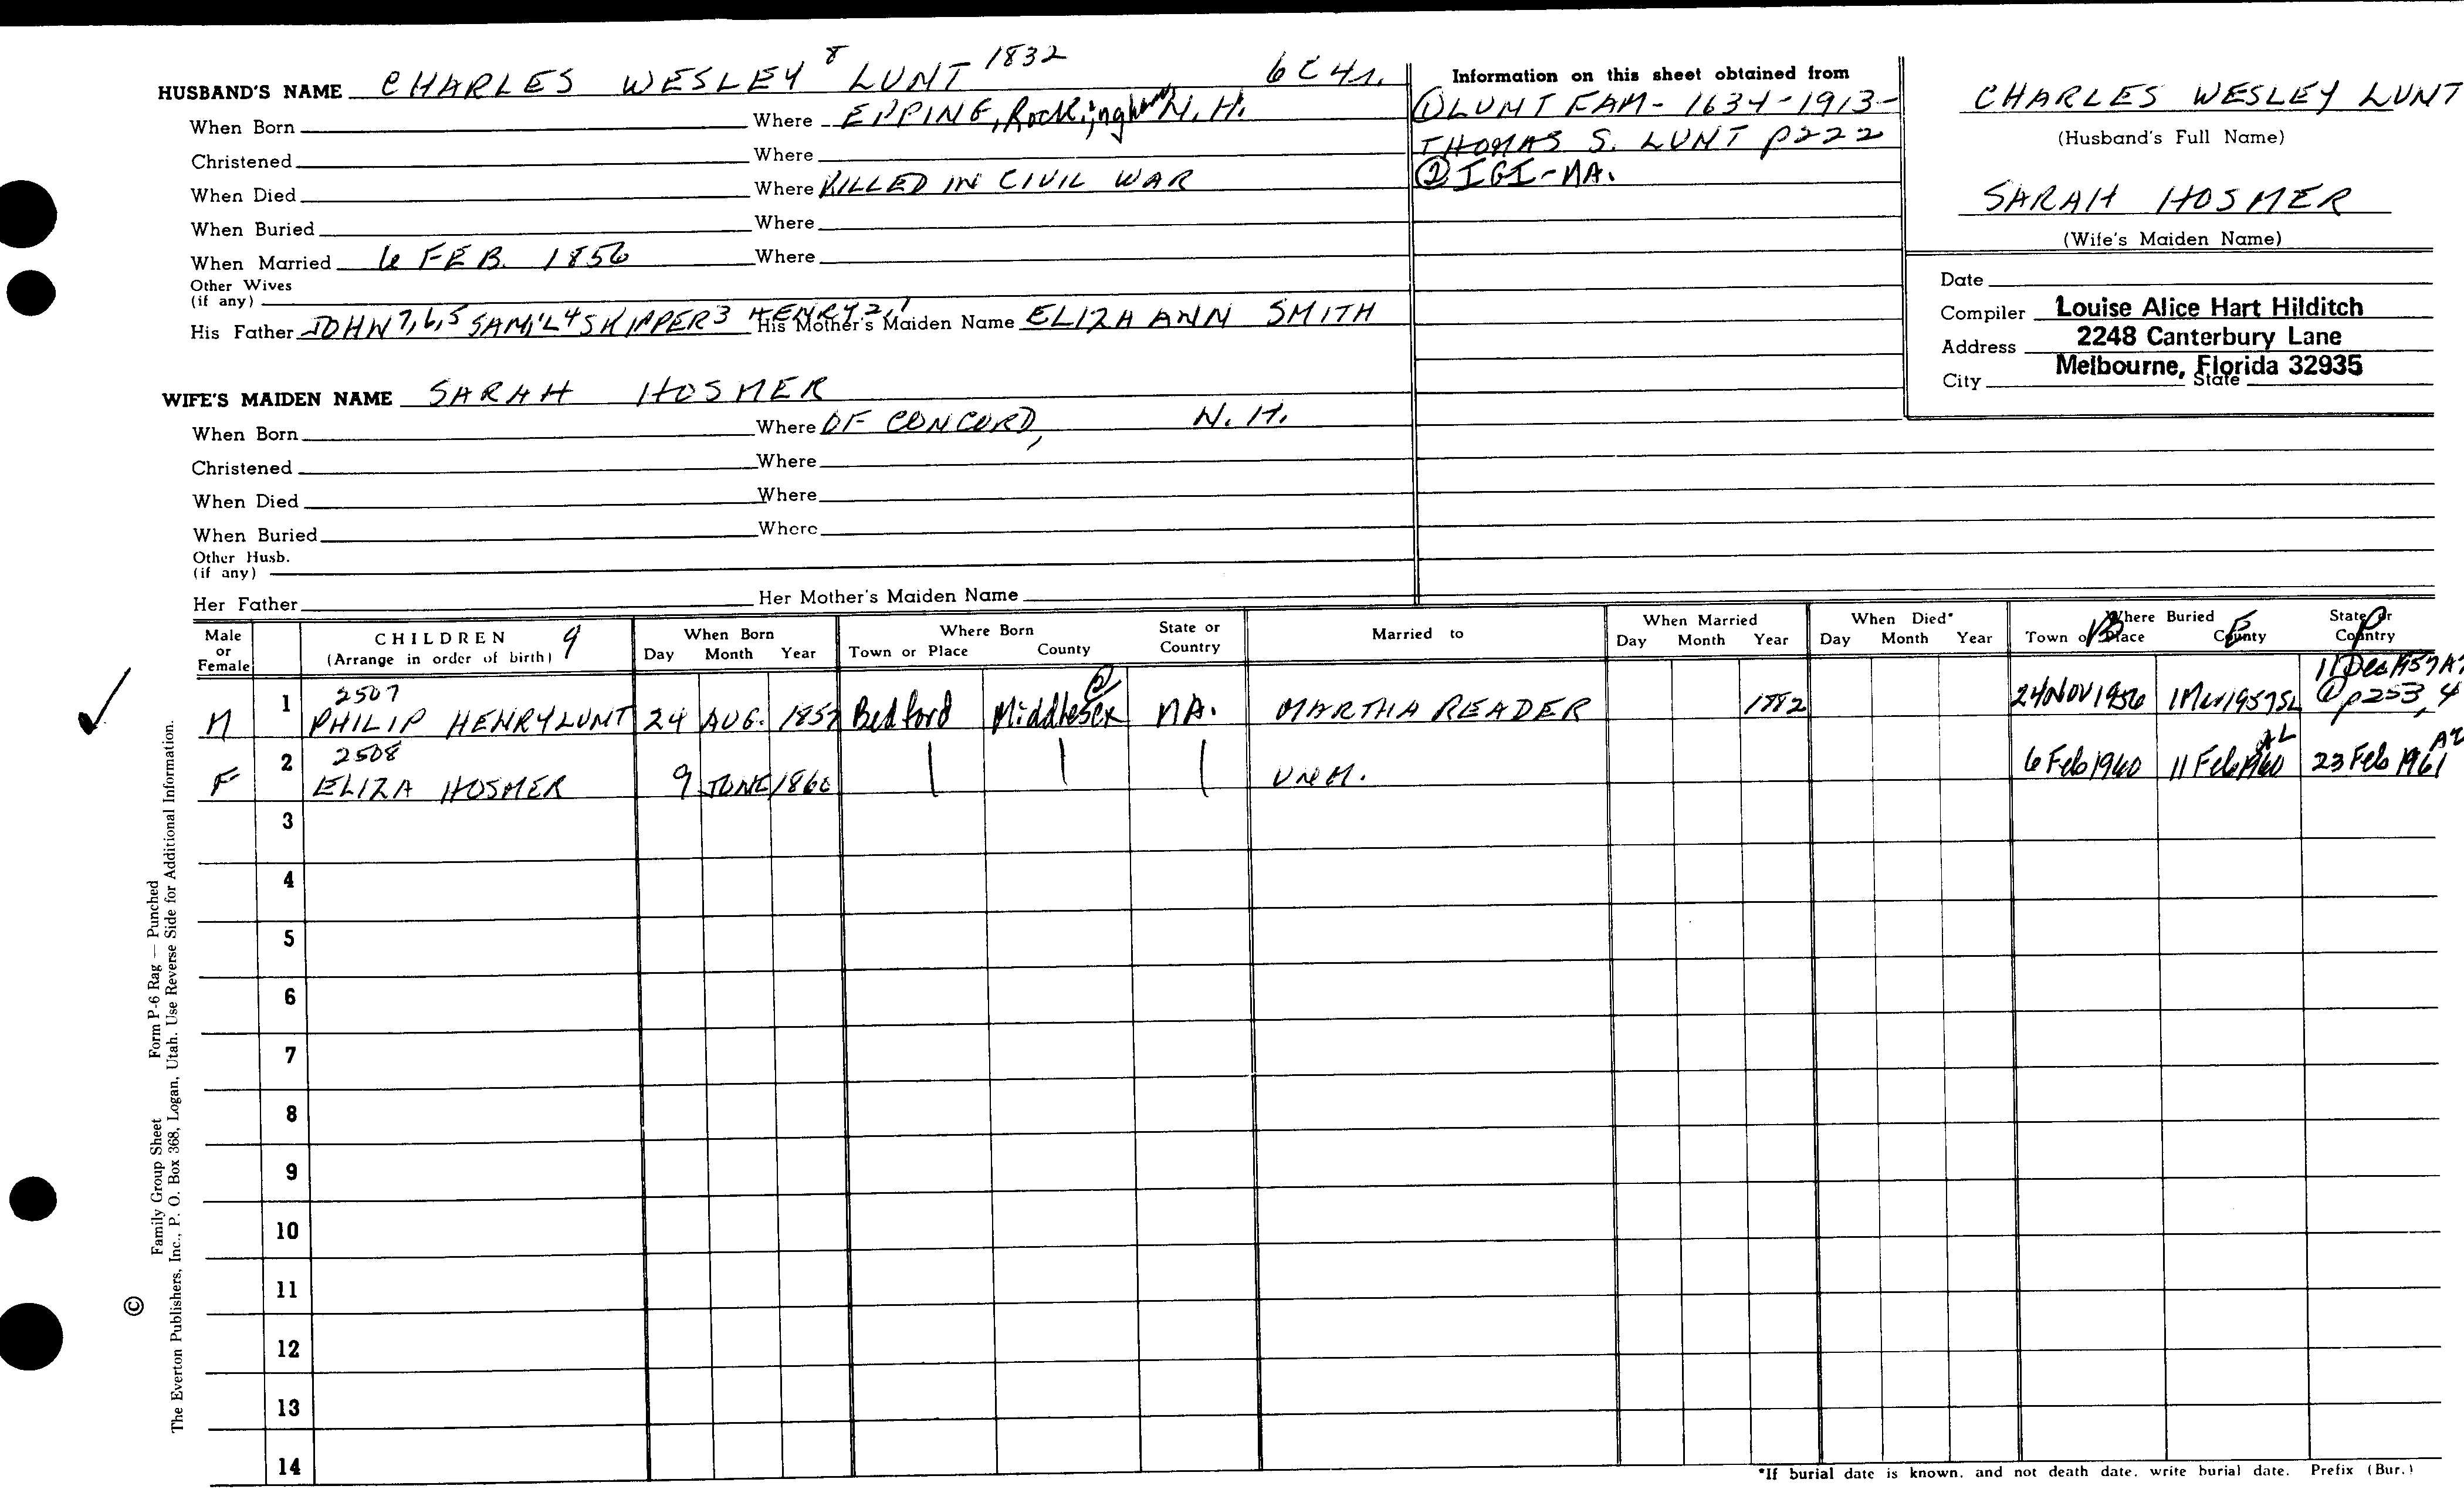 HUSBAND'S NAME CHARLES WESLEY 8 LUNT 1832 6C41.
When Born Where EPPING, Rockingham N.H.
Christened Where
When Died Where KILLED IN CIVIL WAR
When Buried Where
When Married 6 FEB. 1856 Where
Other Wives
(if any)
His Father JOHN 7,6,5 SAM'L 4 SKIPPER 3 HENRY 2,1 His Mother's Maiden Name ELIZA ANN SMITH
WIFE'S MAIDEN NAME SARAH HOSMER
When Born Where OF CONCORD, N.H.
Christened Where
When Died Where
When Buried Where
Other Husb.
(if any)
Her Father Her Mother's Maiden Name
Information on this sheet obtained from
① LUNT FAM- 1634-1913-
THOMAS S. LUNT p222
② IGI-MA.
CHARLES WESLEY LUNT
(Husband's Full Name)
SARAH HOSMER
(Wife's Maiden Name)
Date
Compiler Louise Alice Hart Hilditch
Address 2248 Canterbury Lane
City Melbourne, Florida 32935 State
Male or Female CHILDREN 9 (Arrange in order of birth) When Born Day Month Year Where Born Town or Place County State or Country Married to When Married Day Month Year When Died* Day Month Year Where Buried Town or Place County State or Country
B E P
M 1 2507 PHILIP HENRY LUNT 24 AUG. 1857 Bedford Middlesex ② MA. MARTHA READER 1882 24 NOV 1956 1 Mar 1957 SL 11 Dec 1957 AZ ① p253,4
F 2 2508 ELIZA HOSMER 9 JUNE 1860 | | | UNM. 6 Feb 1960 11 Feb 1960 AL 23 Feb 1961 AZ
3
4
5
6
7
8
9
10
11
12
13
14
*If burial date is known, and not death date, write burial date. Prefix (Bur.)
© Family Group Sheet Form P-6 Rag — Punched
The Everton Publishers, Inc., P. O. Box 368, Logan, Utah. Use Reverse Side for Additional Information.